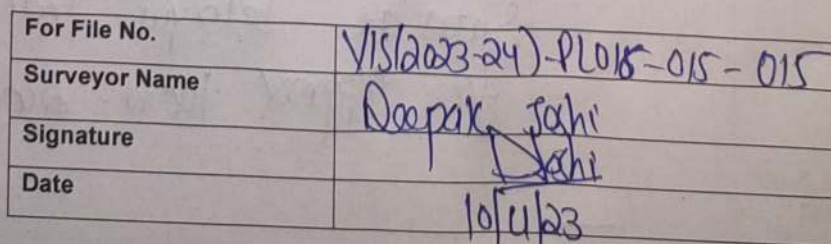 For File No. VIS(2023-24)-PL015-015-015
Surveyor Name Deepak Joshi
Signature DJoshi
Date 10/4/23